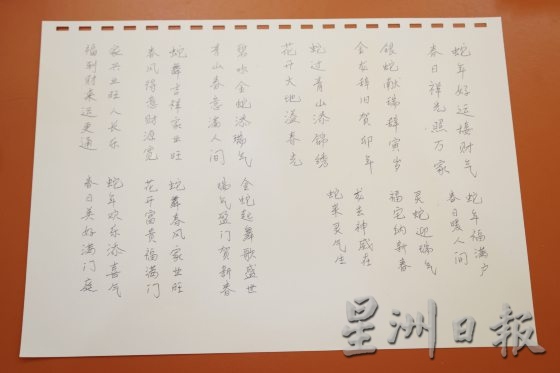 蛇年好运接财气
春日祥光照万家
银蛇献瑞辞寅岁
金龙辞旧贺卯年
蛇过青山添锦绣
花开大地溢春光
碧水金蛇添瑞气
青山春意满人间
蛇舞吉祥家业旺
春风得意财源宽
家兴业旺人长乐
福到财来运更通
蛇年福满户
春日暖人间
灵蛇迎瑞气
福宅纳新春
龙去神威在
蛇来灵气生
金蛇起舞歌盛世
瑞气盈门贺新春
蛇舞春风家业旺
花开富贵福满门
蛇年欢乐添喜气
春日美好满门庭
星洲日報